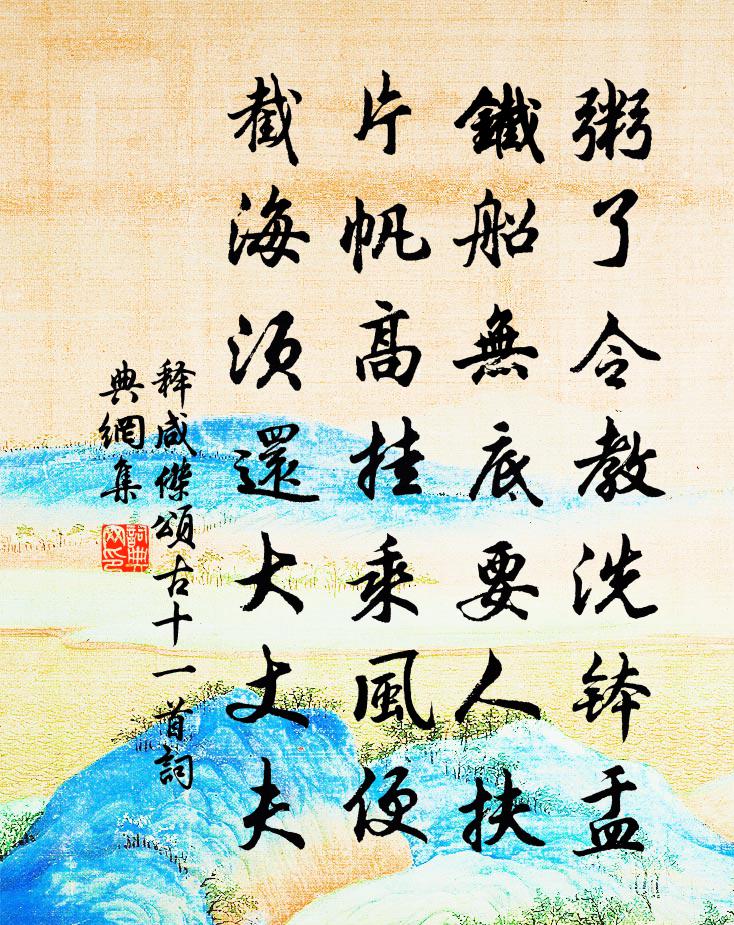 粥了令教洗鉢盂
鐵船無底要人扶
片帆高挂乘風便
截海須還大丈夫
释咸傑頌古十一首詞
典網集
詞典
网印